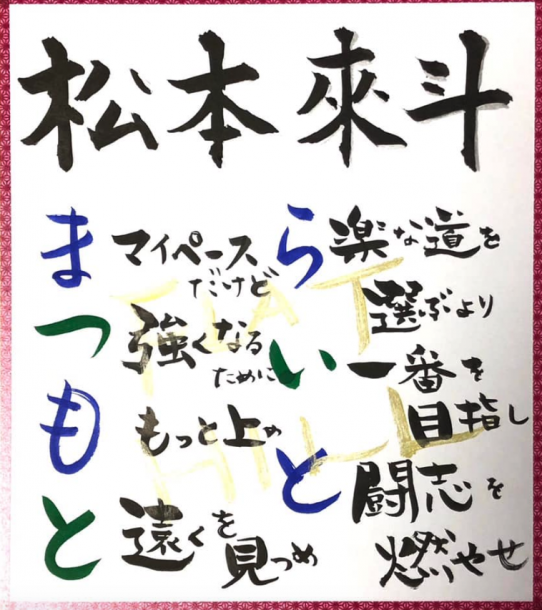 松本來斗
ま マイペース
だけど
つ 強くなる
ために
も もっと上の
と 遠くを
見つめ
ら 楽な道を
選ぶより
い 一番を
目指し
と 闘志を
燃やせ
FLAT
HILL